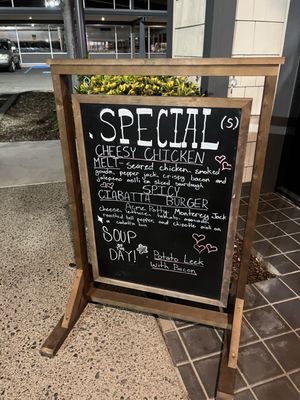 SPECIAL (s)
CHEESY CHICKEN
MELT- seared chicken, smoked
gouda, pepper jack, crispy bacon and
jalapeno aioli on grilled sourdough
SPICY
CIABATTA BURGER
Acme Patty, Monterey Jack
cheese, lettuce, tomato, avocado,
roasted bell pepper, and chipotle aioli on
a ciabatta bun
SOUP
OF THE
DAY!
Potato Leek
With Bacon